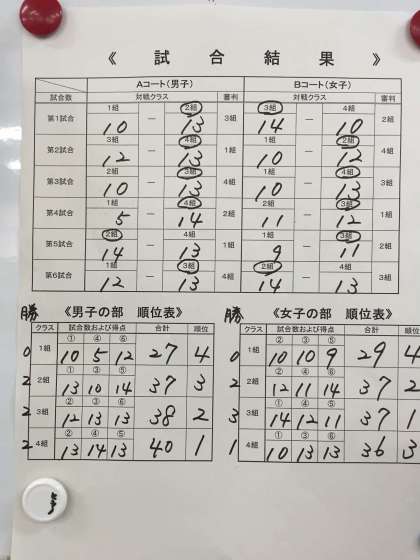 《 試 合 結 果 》
Aコート(男子) Bコート(女子)
試合数 対戦クラス 審判 対戦クラス 審判
第1試合 1組 10 ― 2組 13 3組 3組 14 ― 4組 10 2組
第2試合 3組 12 ― 4組 13 1組 1組 10 ― 2組 12 4組
第3試合 2組 10 ― 3組 13 4組 1組 10 ― 4組 13 3組
第4試合 1組 5 ― 4組 14 2組 2組 11 ― 3組 12 1組
第5試合 2組 14 ― 4組 13 1組 1組 9 ― 3組 11 2組
第6試合 1組 12 ― 3組 13 4組 2組 14 ― 4組 13 3組
勝 《男子の部 順位表》
クラス 試合数および得点 合計 順位
① ④ ⑥
0 1組 10 5 12 27 4
① ③ ⑤
2 2組 13 10 14 37 3
② ③ ⑥
2 3組 12 13 13 38 2
② ④ ⑤
2 4組 13 14 13 40 1
勝 《女子の部 順位表》
クラス 試合数および得点 合計 順位
② ③ ⑤
0 1組 10 10 9 29 4
② ④ ⑥
2 2組 12 11 14 37 2
① ④ ⑤
3 3組 14 12 11 37 1
① ③ ⑥
1 4組 10 13 13 36 3